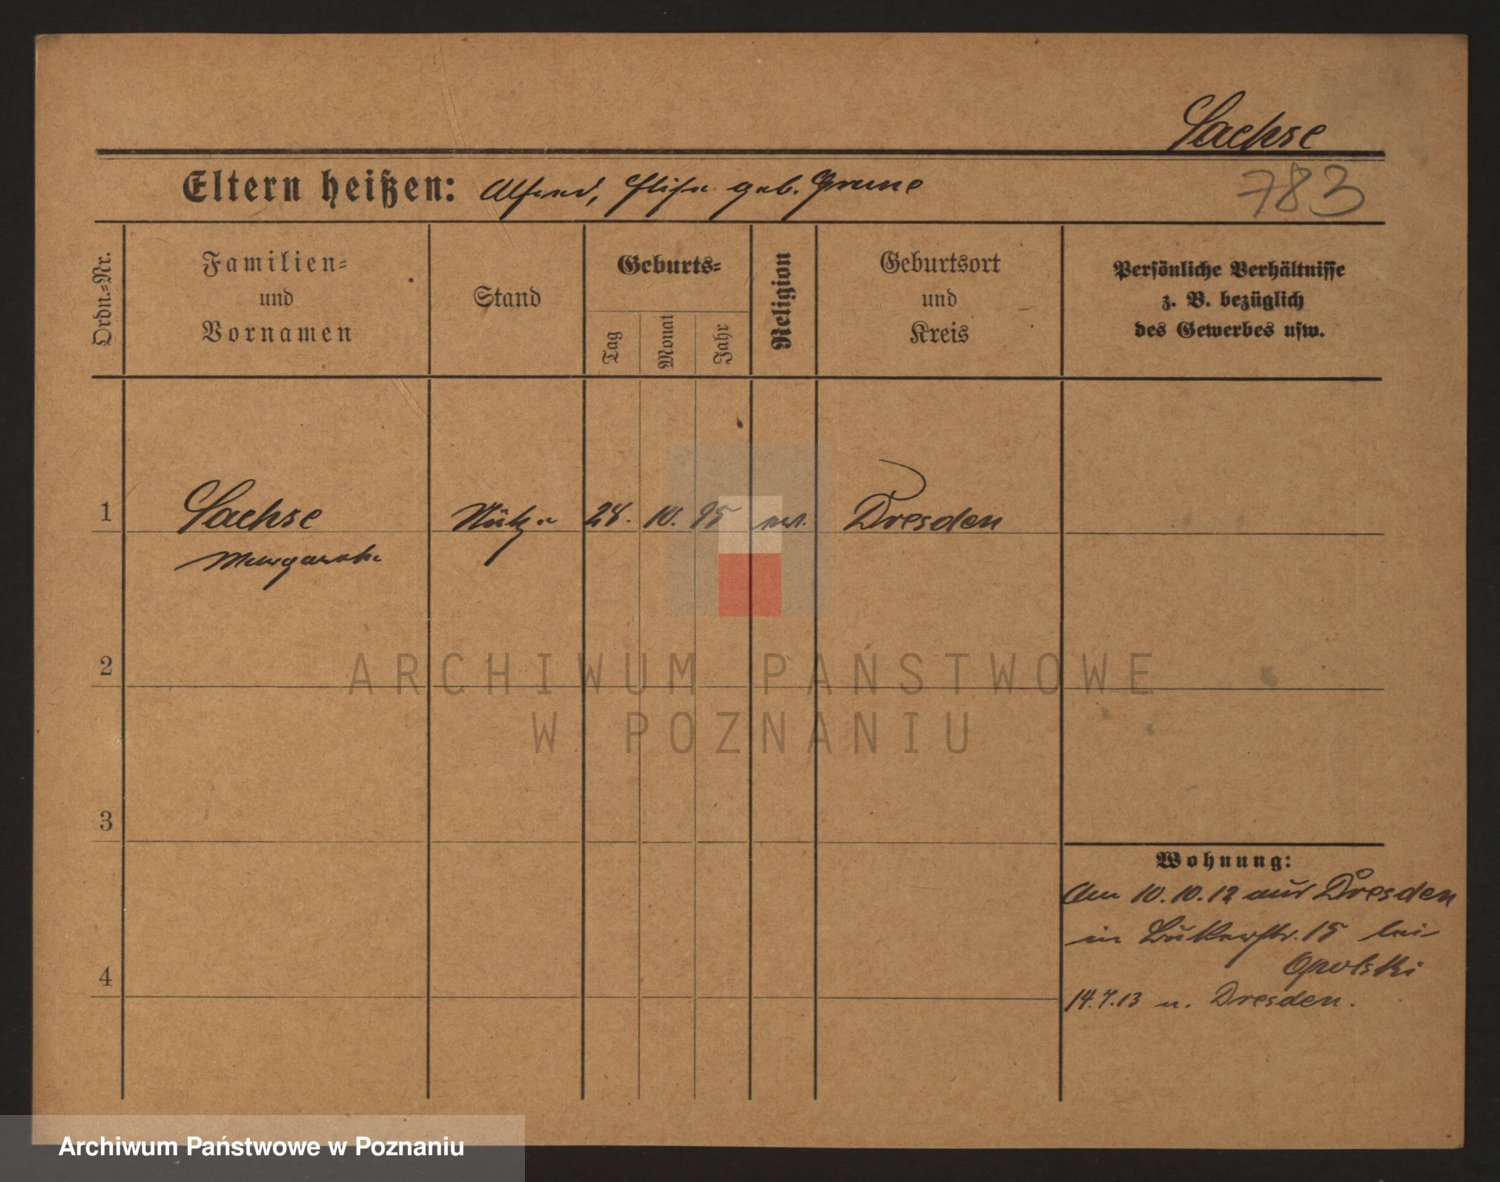 Sachse
Eltern heißen: Alfred, Elise geb. Grune
783
Ordn.=Nr.
Familien=
und
Vornamen
Stand
Geburts=
Tag
Monat
Jahr
Religion
Geburtsort
und
Kreis
Persönliche Verhältnisse
z. B. bezüglich
des Gewerbes usw.
1
Sachse
28. 10. 95
Dresden
Margarethe
2
ARCHIWUM PAŃSTWOWE
W POZNANIU
3
Wohnung:
Am 10.10.12 aus Dresden
in 15 bei
Opolski
14.7.13 n. Dresden.
4
Archiwum Państwowe w Poznaniu